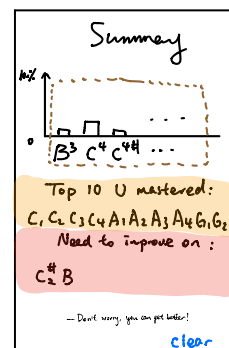 Summary
10%
0
B³ C⁴ C⁴# ...
Top 10 U mastered:
C₁ C₂ C₃ C₄ A₁ A₂ A₃ A₄ G₁ G₂
Need to improve on :
C₂# B
— Don't worry, you can get better!
clear